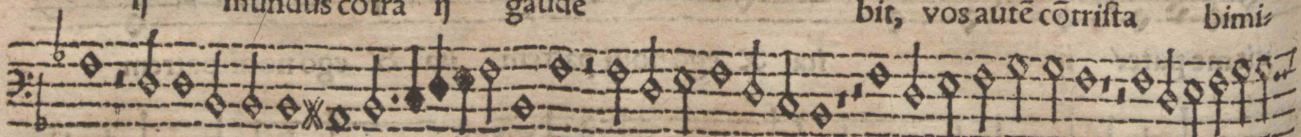 ij mundus cōtra ij gaude bit, vos autē cōtriſta bimi⸗